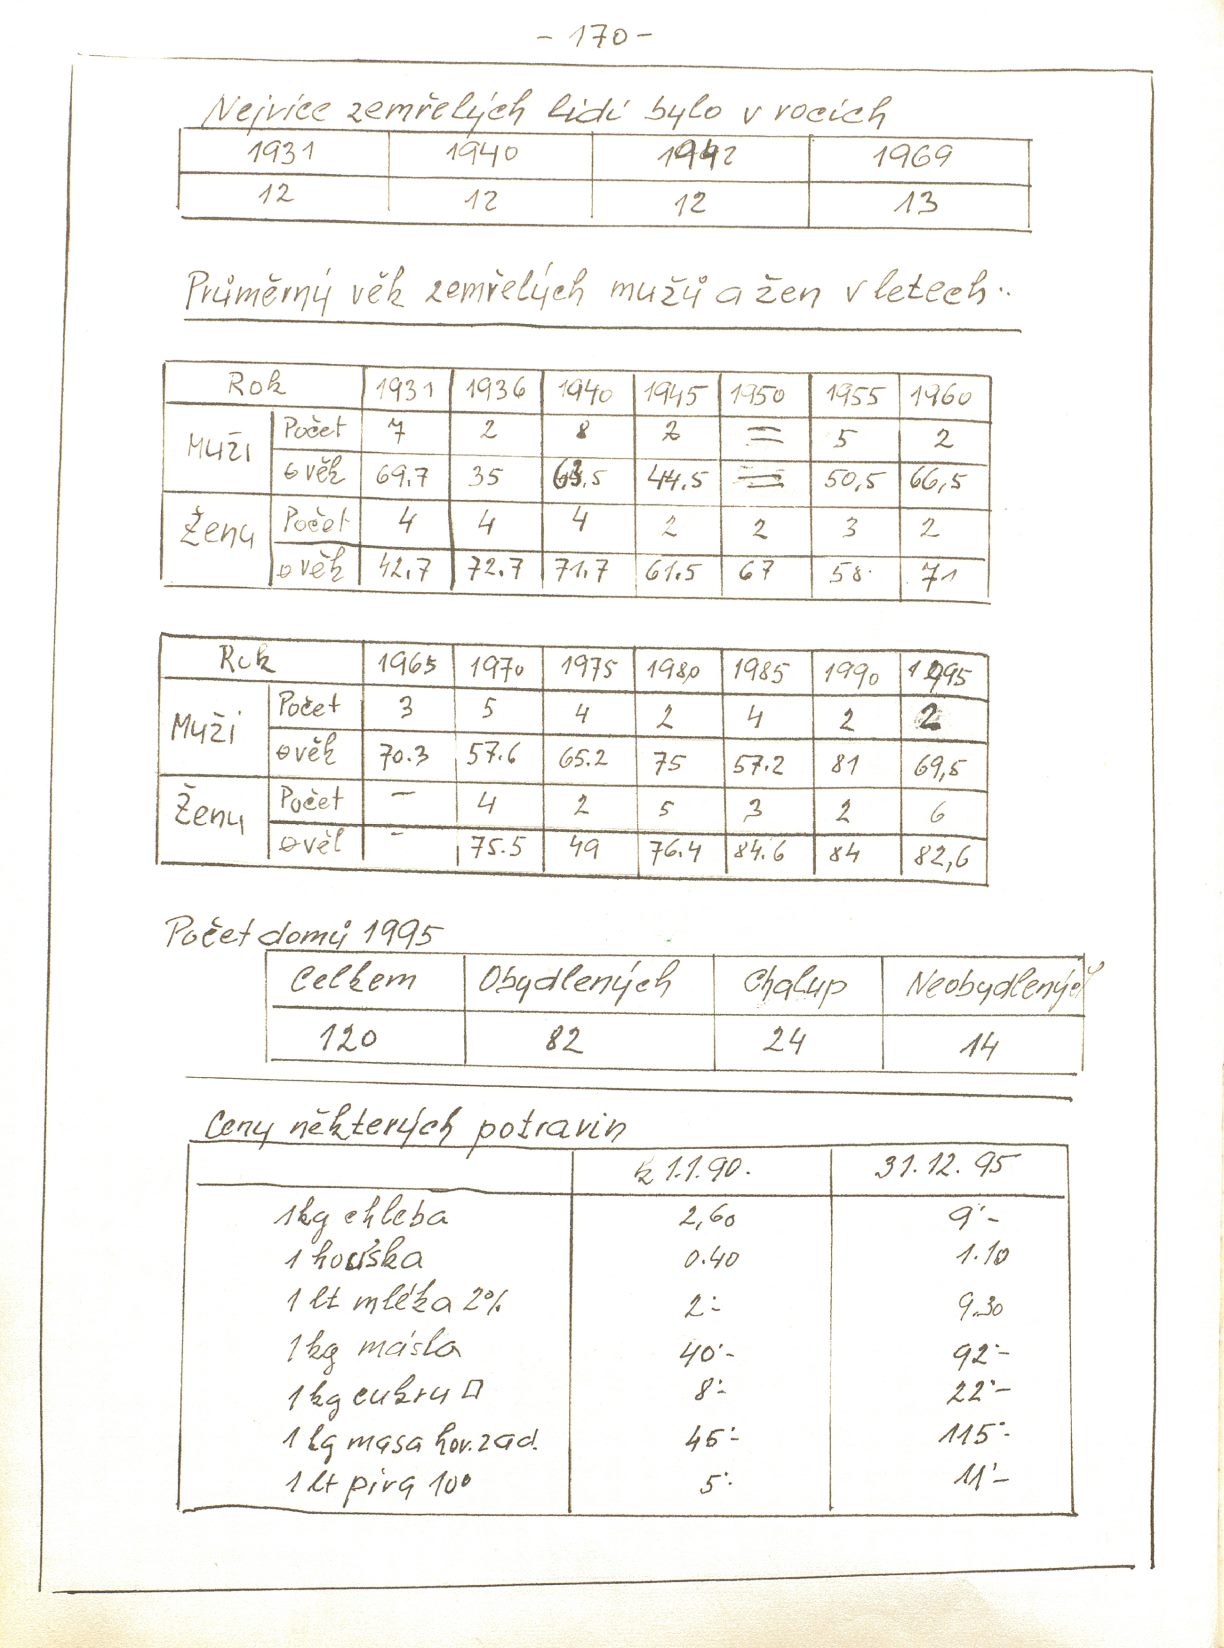 - 170 -
Nejvíce zemřelých lidí bylo v rocích
1931 1940 1942 1969
12 12 12 13
Průměrný věk zemřelých mužů a žen v letech..
Rok 1931 1936 1940 1945 1950 1955 1960
Muži Počet 7 2 8 2 = 5 2
ø věk 69,7 35 63,5 44.5 = 50,5 66,5
Ženy Počet 4 4 4 2 2 3 2
ø věk 42,7 72.7 71.7 61.5 67 58. 71
Rok 1965 1970 1975 1980 1985 1990 1995
Muži Počet 3 5 4 2 4 2 2
ø věk 70.3 57.6 65.2 75 57.2 81 69,5
Ženy Počet - 4 2 5 3 2 6
ø věl - 75.5 49 76.4 84.6 84 82,6
Počet domů 1995
Celkem Obydlených Chalup Neobydlených
120 82 24 14
Ceny některých potravin
k 1.1.90. 31.12.95
1 kg chleba 2,60 9·-
1 houska 0.40 1.10
1 lt mléka 2% 2:- 9.30
1 kg másla 40·- 92·-
1 kg cukru □ 8:- 22·-
1 kg masa hov. zad. 45:- 115:-
1 lt piva 10° 5·- 11·-